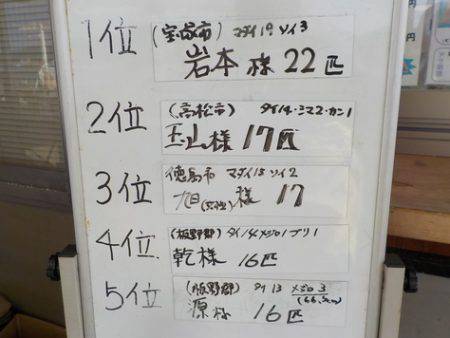 1位
(宝塚市) マダイ19 ソイ3
岩本様 22匹
2位
(高松市) タイ14・シマ2・カン1
玉山様 17匹
3位
徳島市 マダイ15 ソイ2
旭 様 17
4位
(板野郡) タイ14 メジロ1 ブリ1
乾様 16匹
5位
(板野郡) タイ13 メジロ3
(66.5cm)
源様 16匹